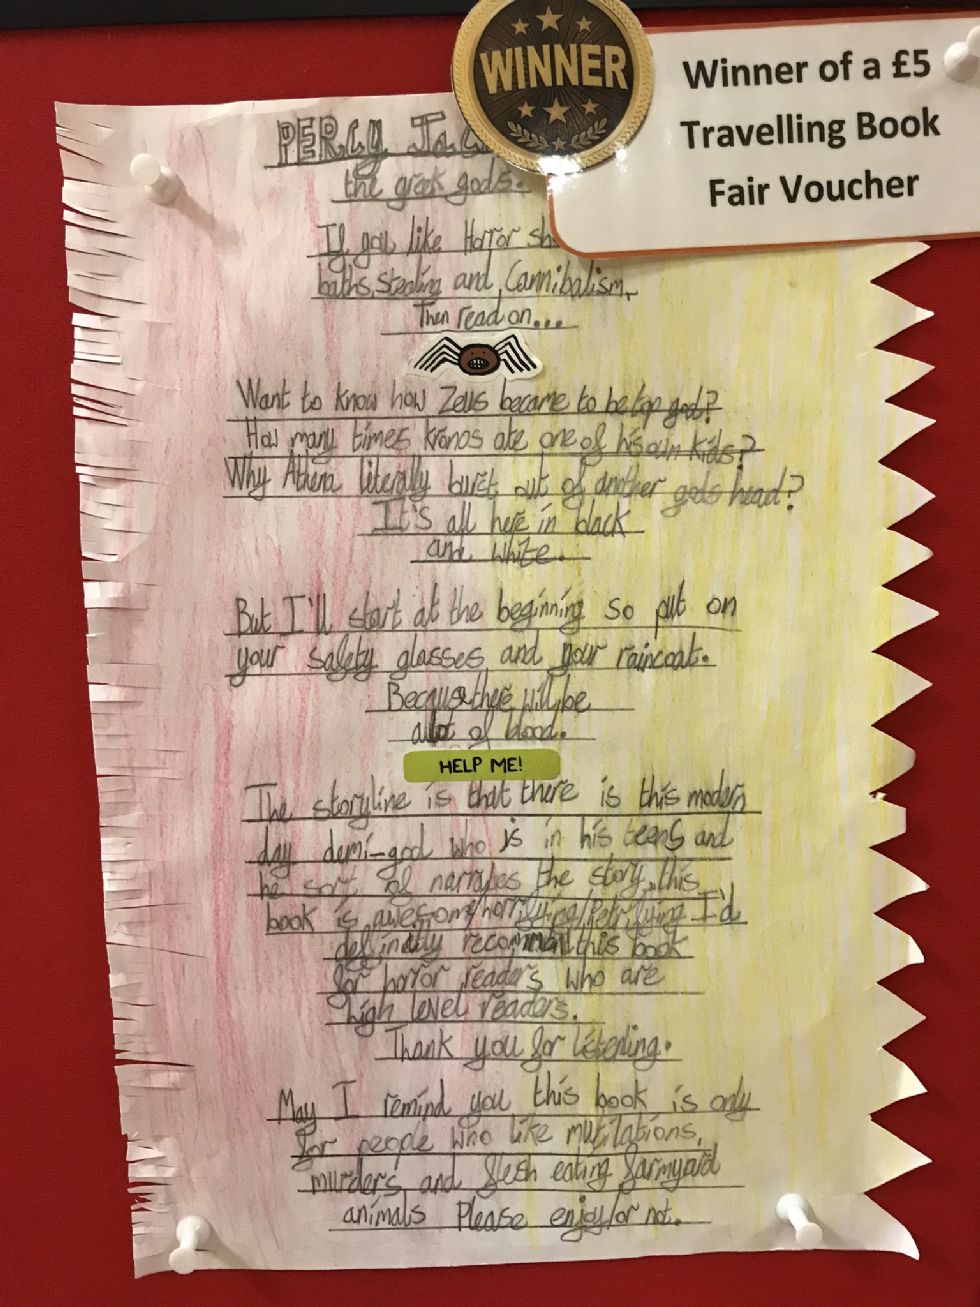 WINNER
Winner of a £5
Travelling Book
Fair Voucher
PERCY
the greek gods.
If you like Horror
baths, stealing and Cannibalism,
Then read on...
Want to know how Zeus became to be top god?
How many times Kronos ate one of his own kids?
Why Athena literally burst out of another gods head?
It's all here in black
and white.
But I'll start at the beginning so put on
your safety glasses and your raincoat.
Because there will be
alot of blood.
HELP ME!
The storyline is that there is this modern
day demi-god who is in his teens and
he sort of narrates the story, this
book is awesome/horrifying/Petrifying I'd
this book
for horror readers who are
high level readers.
Thank you for listening.
May I remind you this book is only
for people who like mutilations,
murders and flesh eating farmyard
animals Please enjoy/or not.